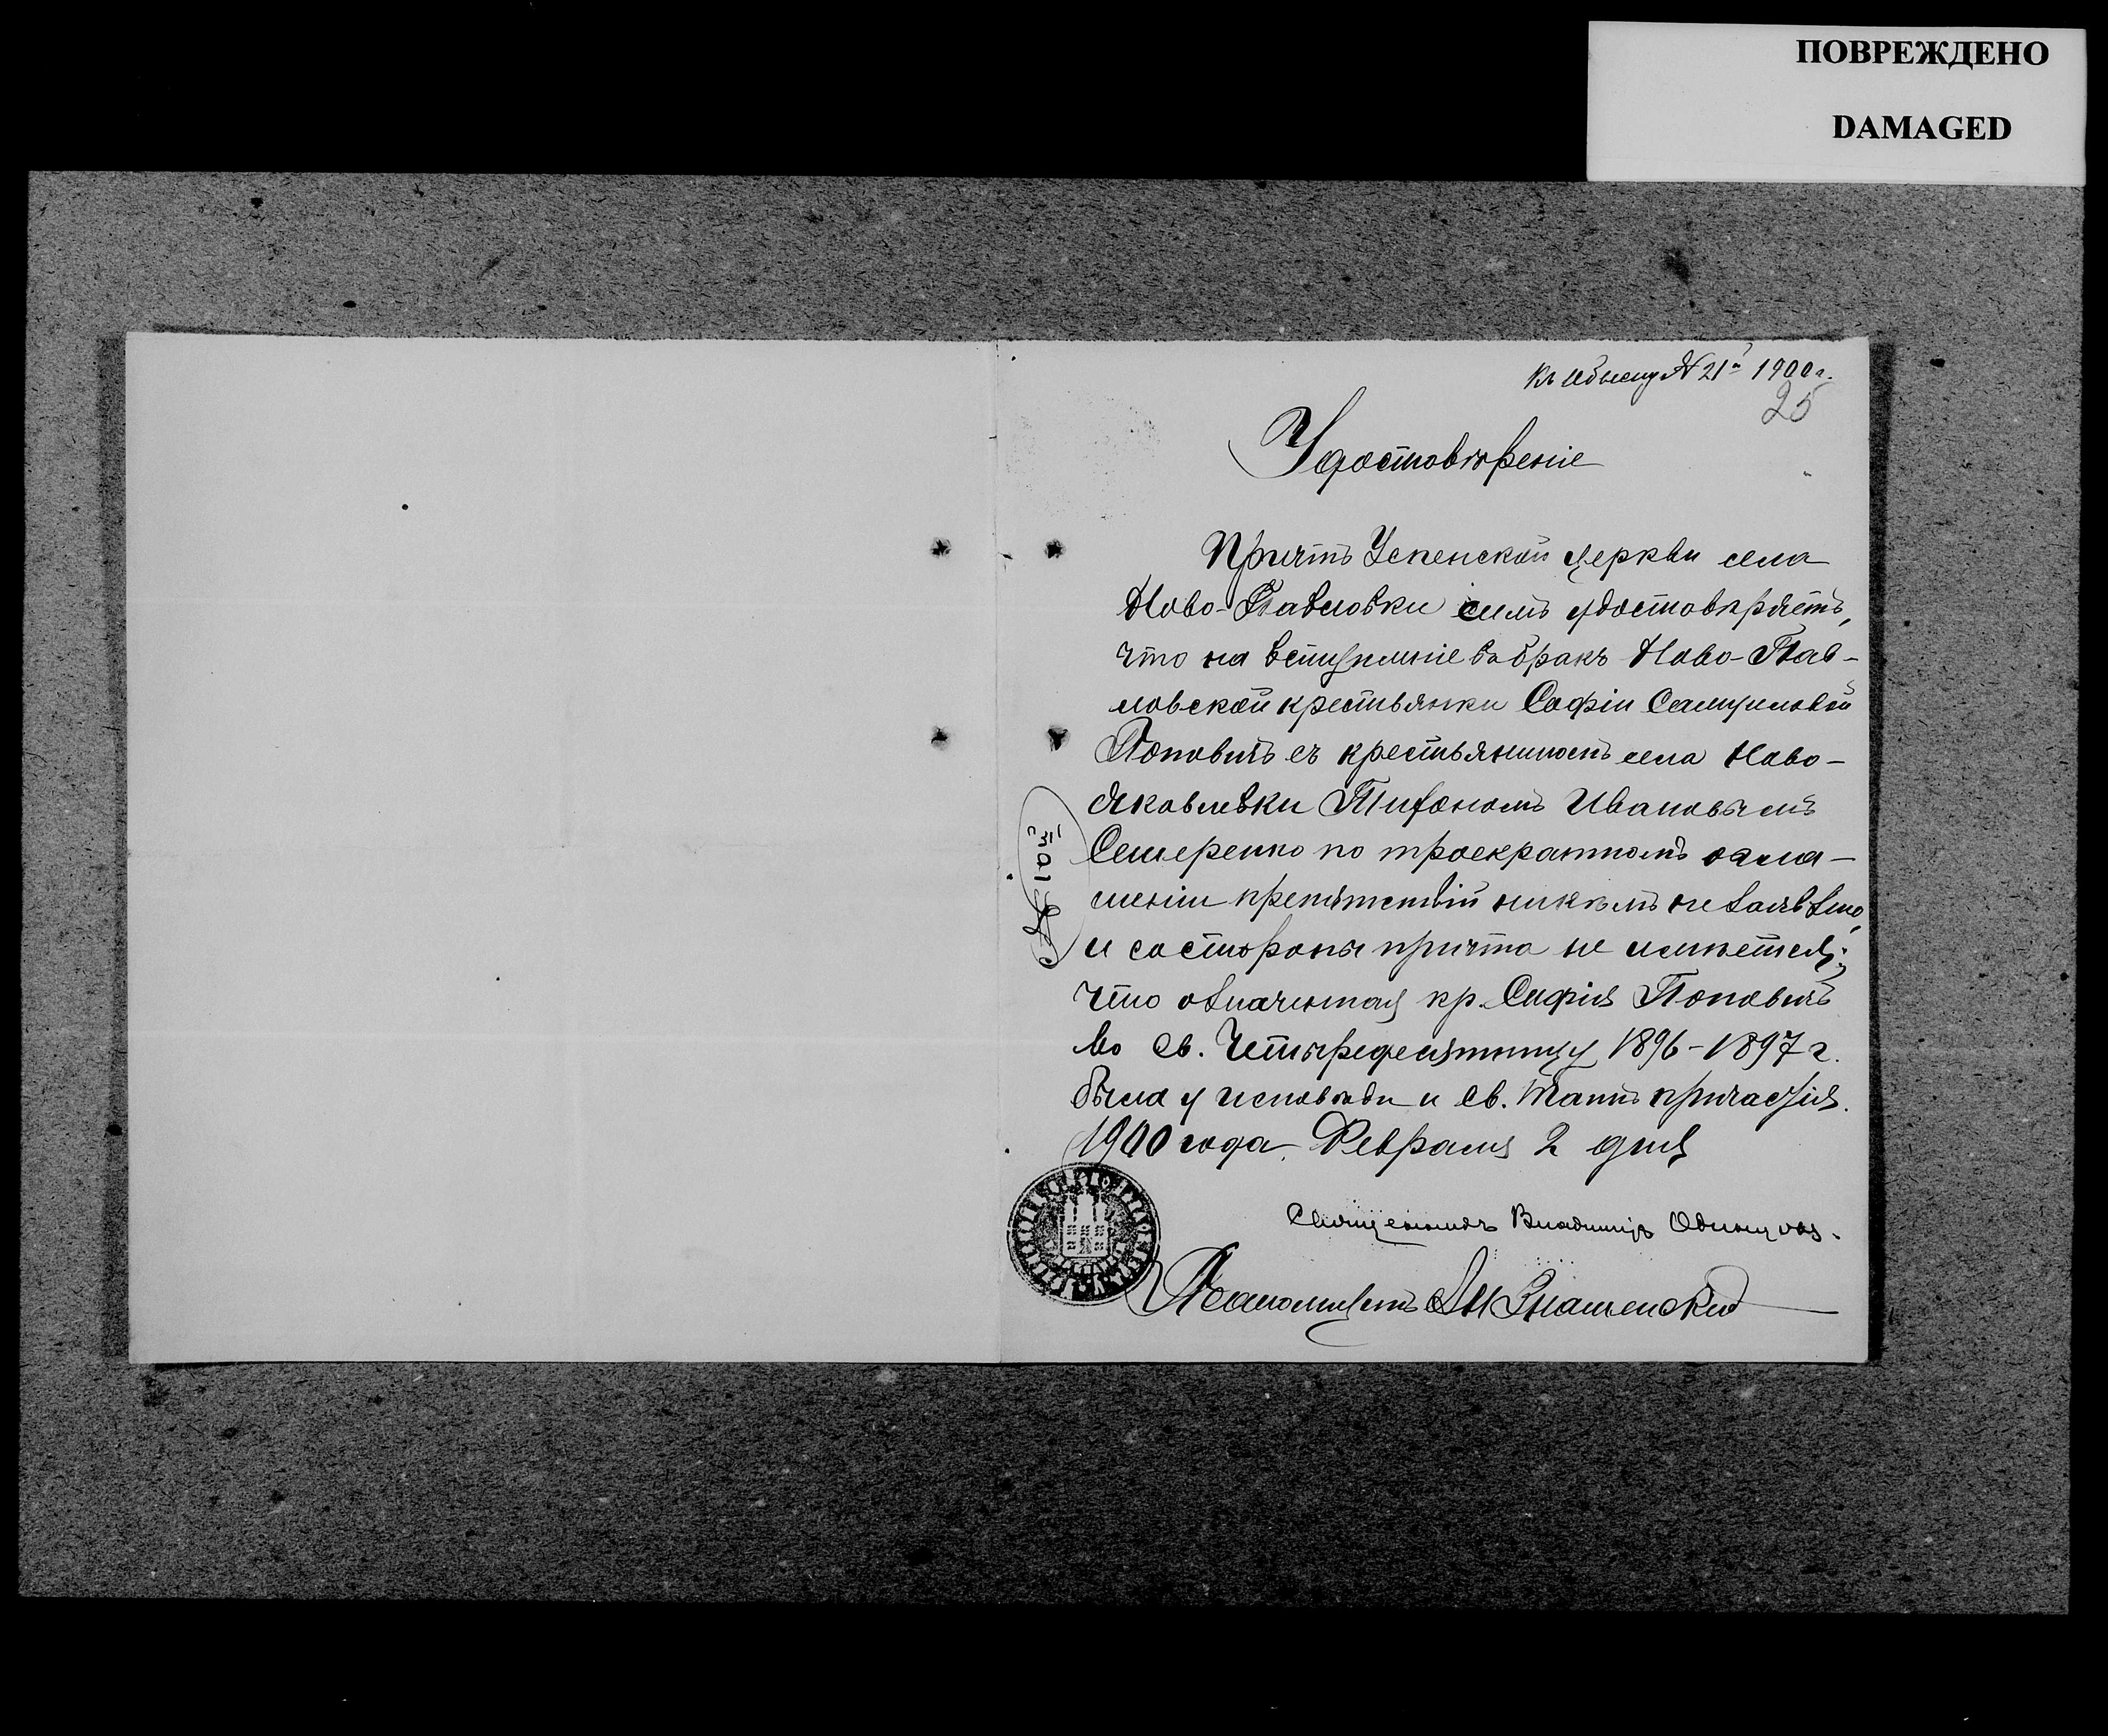 ПОВРЕЖДЕНО
DAMAGED
Къ обыску № 21й 1900 г.
25
Удостовѣреніе
Причтъ Успенской церкви села
Ново-Павловки симъ удостовѣряетъ,
что на вступленіе въ бракъ Ново-Пав-
ловской крестьянки Софіи Самуиловой
Поповичъ съ крестьяниномъ села Ново-
Яковлевки Тифономъ Ивановымъ
Семеренко по троекратномъ огла-
шеніи препятствій никѣмъ не заявлено,
и со стороны причта не имѣется;
что означенная кр. Софія Поповичъ
во св. Четыредесятницу 1896-1897 г.
была у исповѣди и св. Таинъ причастія.
1900 года Февраля 2 дня
Священникъ Владиміръ Одинцовъ.
Псаломщикъ